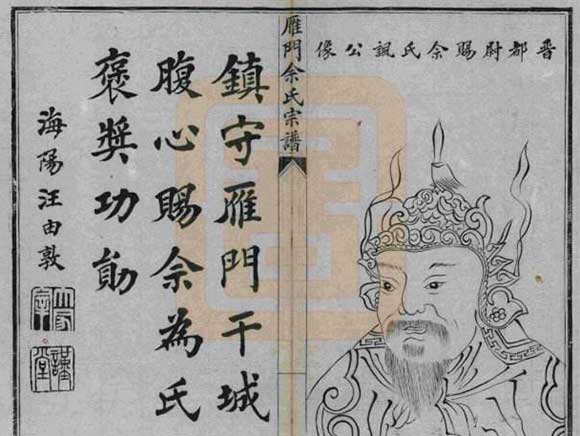 晉都尉賜余氏諷公像
雁門余氏宗譜
鎮守雁門干城
腹心賜余為氏
褒獎功勛
海陽汪由敦